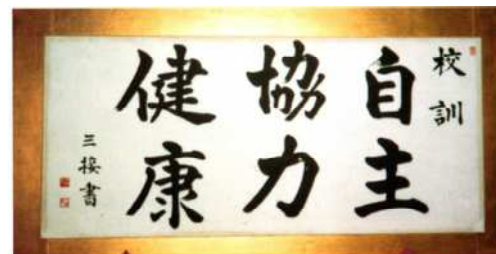 校訓
自主
協力
健康
三接書